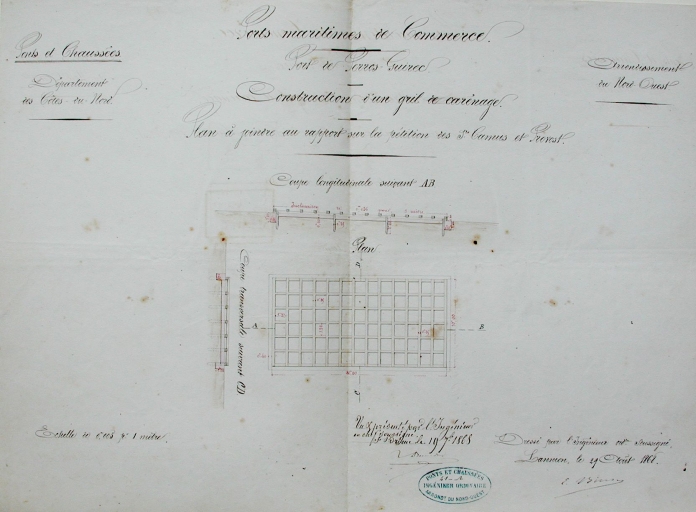 Ponts et Chaussées
Département
des Côtes du Nord.
Ports maritimes de Commerce.
Port de Perros-Guirec
Construction d'un gril de carénage.
Plan à joindre au rapport sur la pétition des Srs Camus et Prévost.
Arrondissement
du Nord Ouest
Coupe longitudinale suivant AB
Plan
Coupe transversale suivant CD
A
B
C
D
Echelle de 0,005 p 1 mètre.
Vu & présenté par l'Ingénieur
en chef soussigné
St Brieuc le 19 7bre 1868
Dressé par l'ingénieur ordre soussigné.
Lannion, le 29 Août 1868.
PONTS ET CHAUSSÉES
INGÉNIEUR ORDINAIRE
ARRONDT DU NORD-OUEST